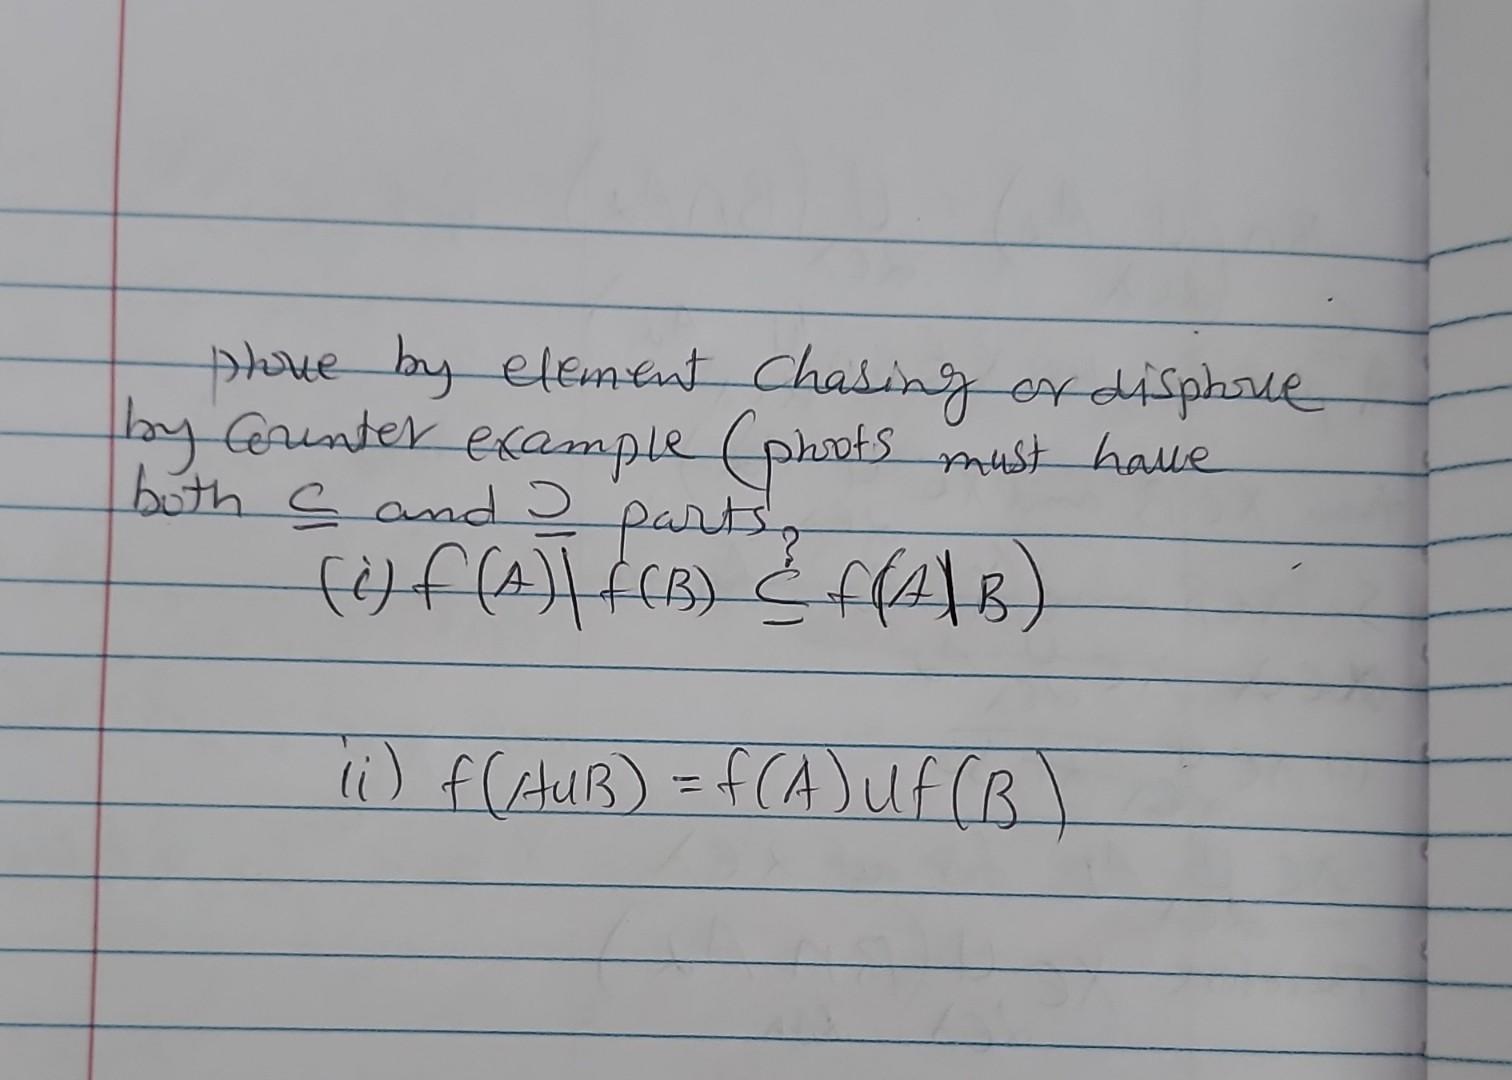 prove by element chasing or disprove
by Counter example (proofs must have
both ⊆ and ⊇ parts,
(i) f(A)\ f(B) ⊆? f(A\B)
ii) f(AUB) = f(A) U f(B)